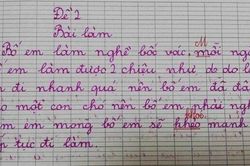 Đề 2
Bài làm
Bố em làm nghề bốc vác, mỗi ng
ố em làm được 2 chiều như do do
đi nhanh quá nên bố em đã đá
một con chó nên bố em phải ng
em mong bố em sẽ khẻo mạnh
tục đi làm.